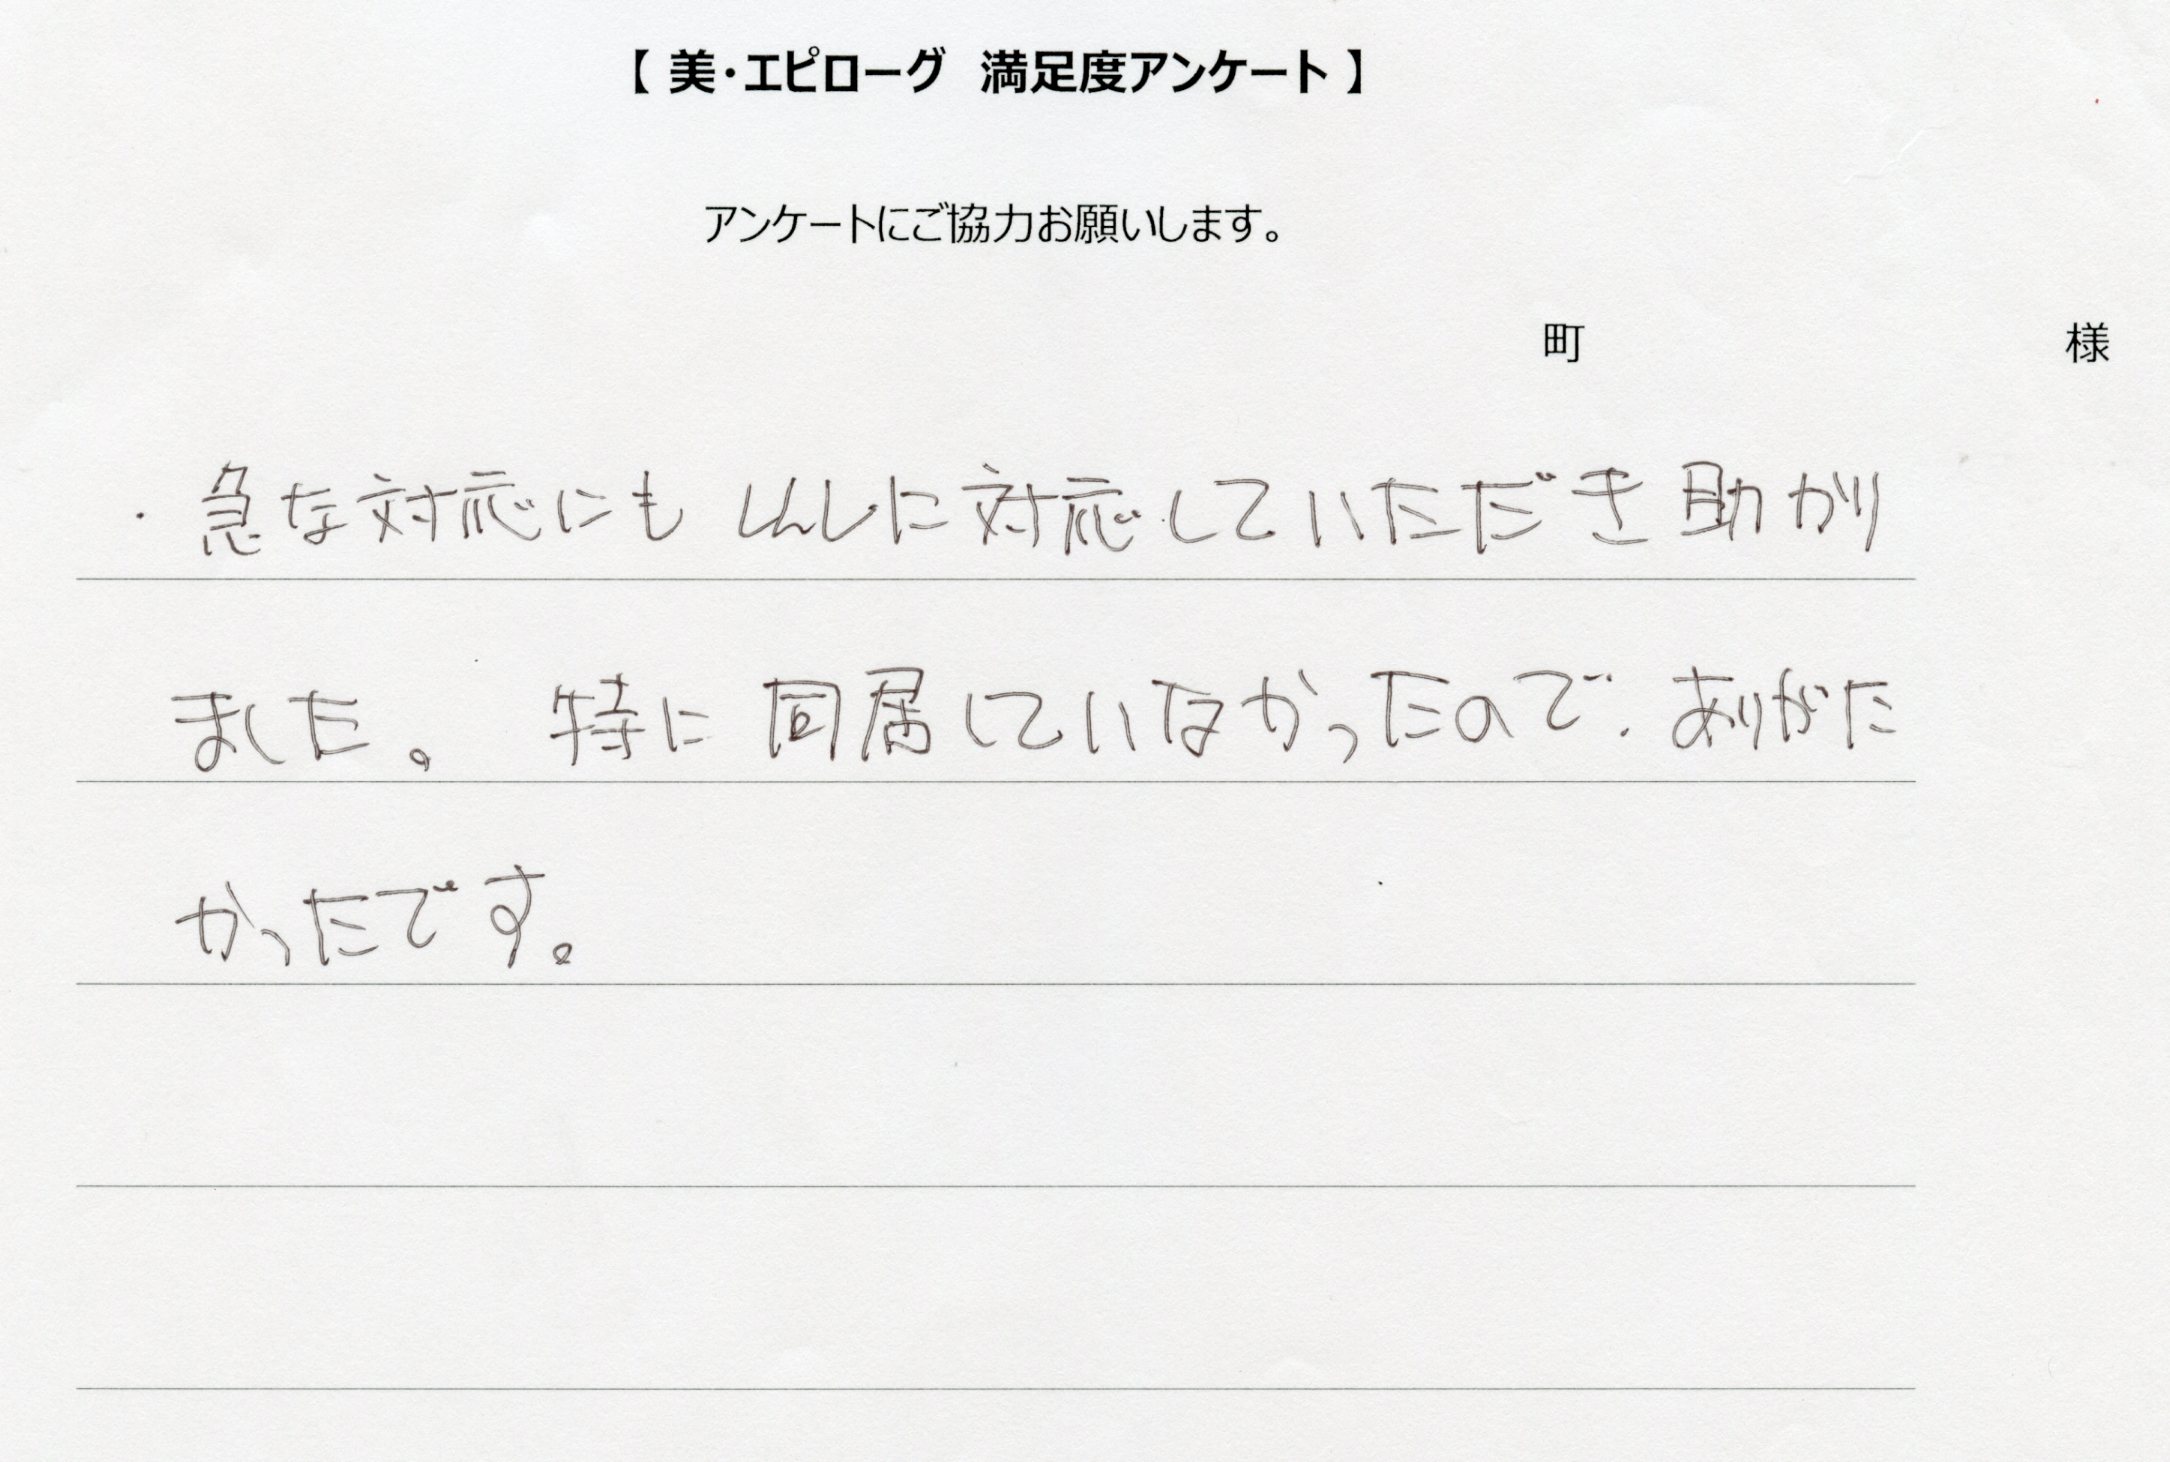 【 美・エピローグ　満足度アンケート 】
アンケートにご協力お願いします。
町　様
・急な対応にも しんしに対応していただき助かり
ました。 特に同居していなかったので、ありがた
かったです。